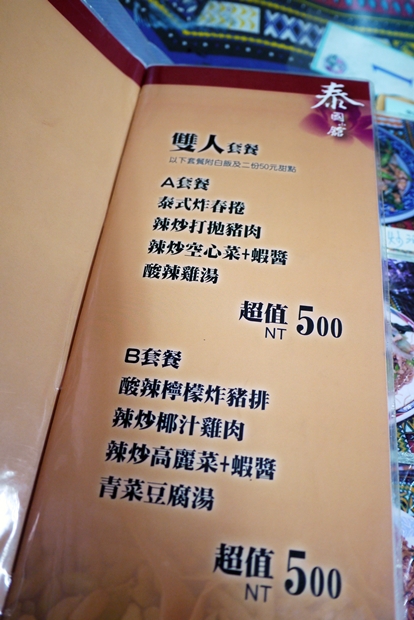 泰
國
雙人套餐
以下套餐附白飯及二份50元甜點
A套餐
泰式炸春捲
辣炒打拋豬肉
辣炒空心菜+蝦醬
酸辣雞湯
超值 NT 500
B套餐
酸辣檸檬炸豬排
辣炒椰汁雞肉
辣炒高麗菜+蝦醬
青菜豆腐湯
超值 NT 500